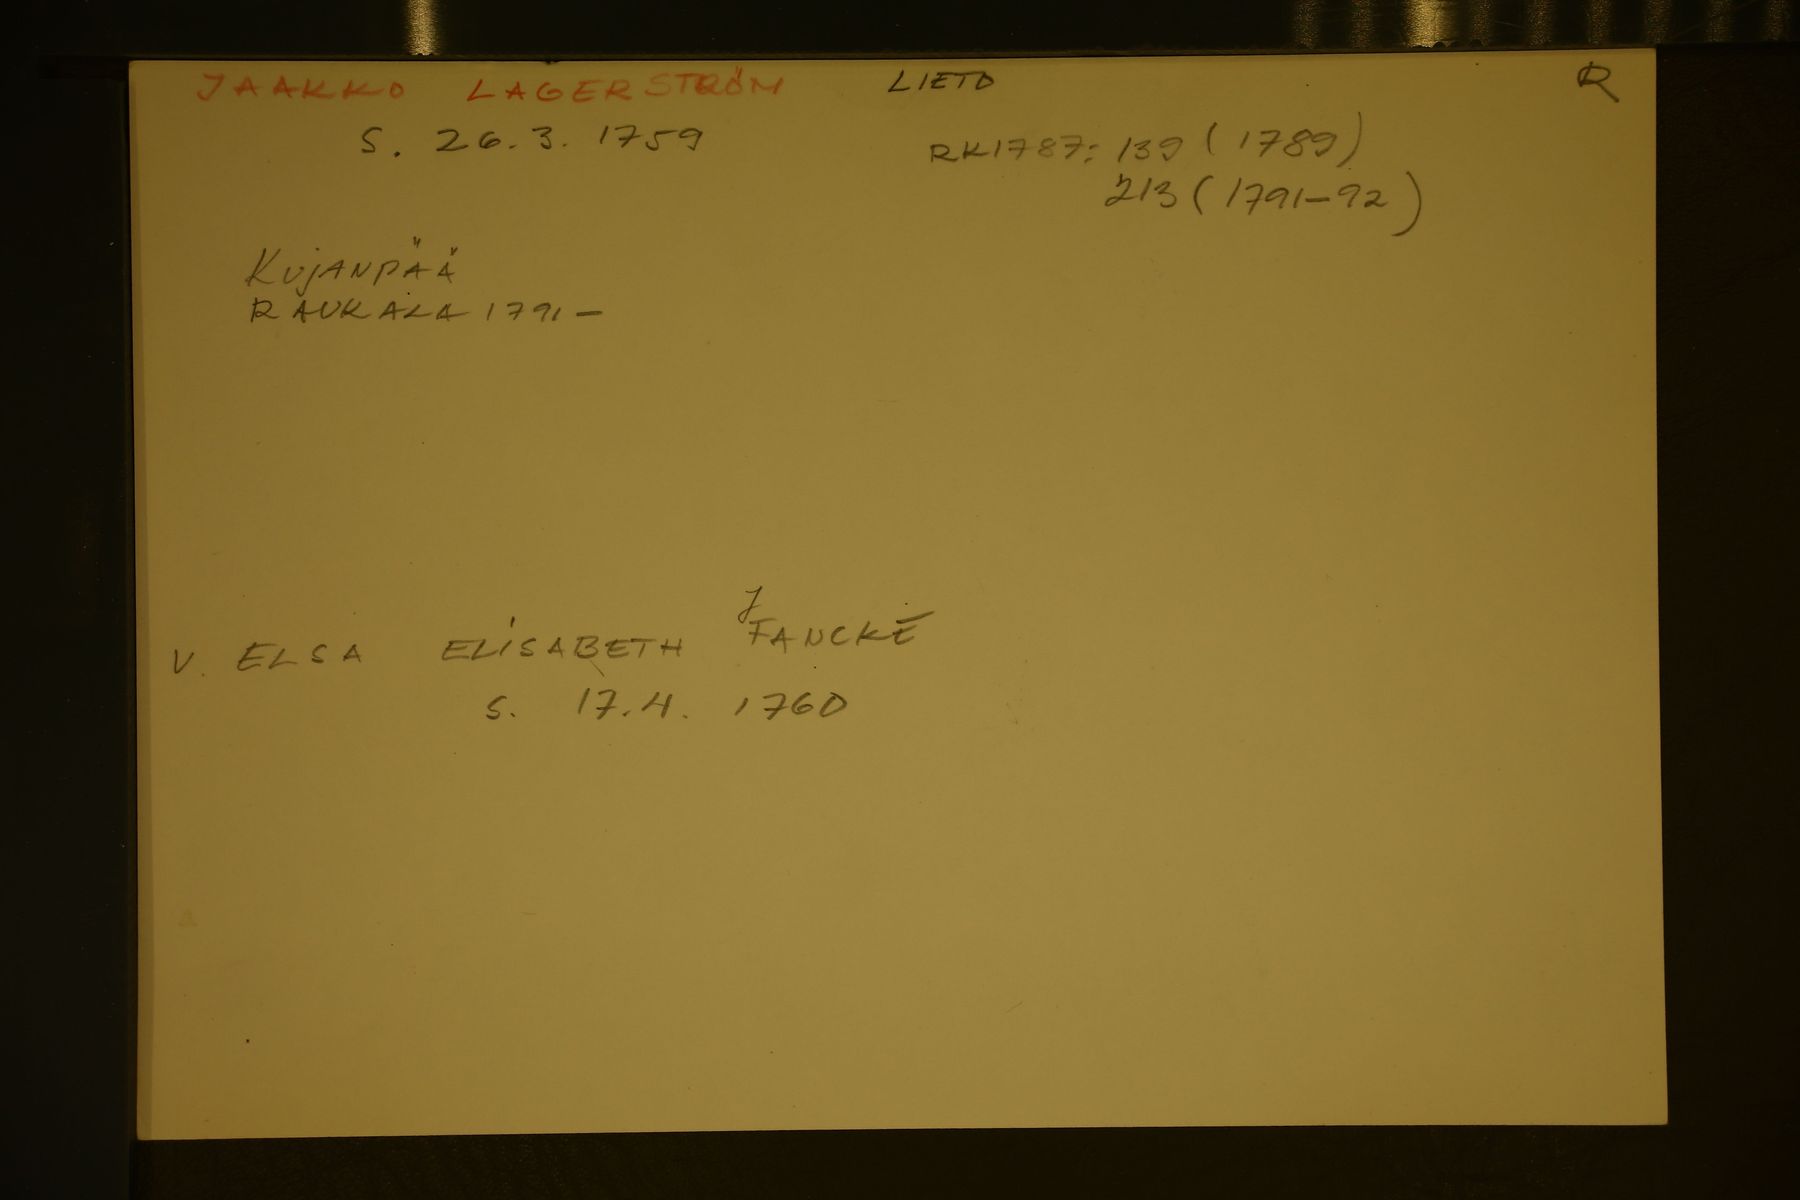 JAAKKO LAGERSTRÖM LIETO R
S. 26.3. 1759
RK1787: 139 (1789)
213 (1791-92)
KUJANPÄÄ
RAUKALA 1791-
J
V. ELSA ELISABETH FANCKE
S. 17.4. 1760